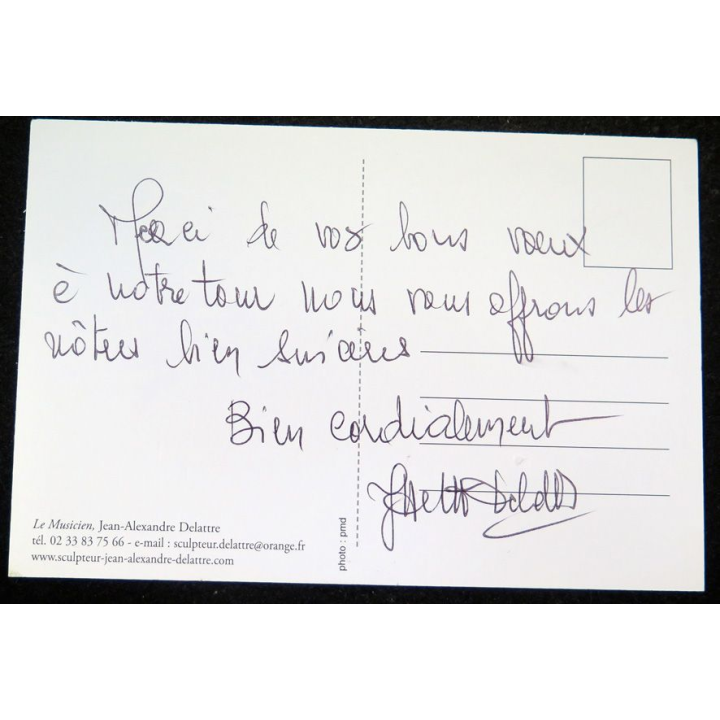 Merci de vos bons voeux
à notre tour nous vous offrons les
nôtres bien sincères
Bien cordialement
Le Musicien, Jean-Alexandre Delattre
tél. 02 33 83 75 66 - e-mail : sculpteur.delattre@orange.fr
www.sculpteur-jean-alexandre-delattre.com
photo : pmd